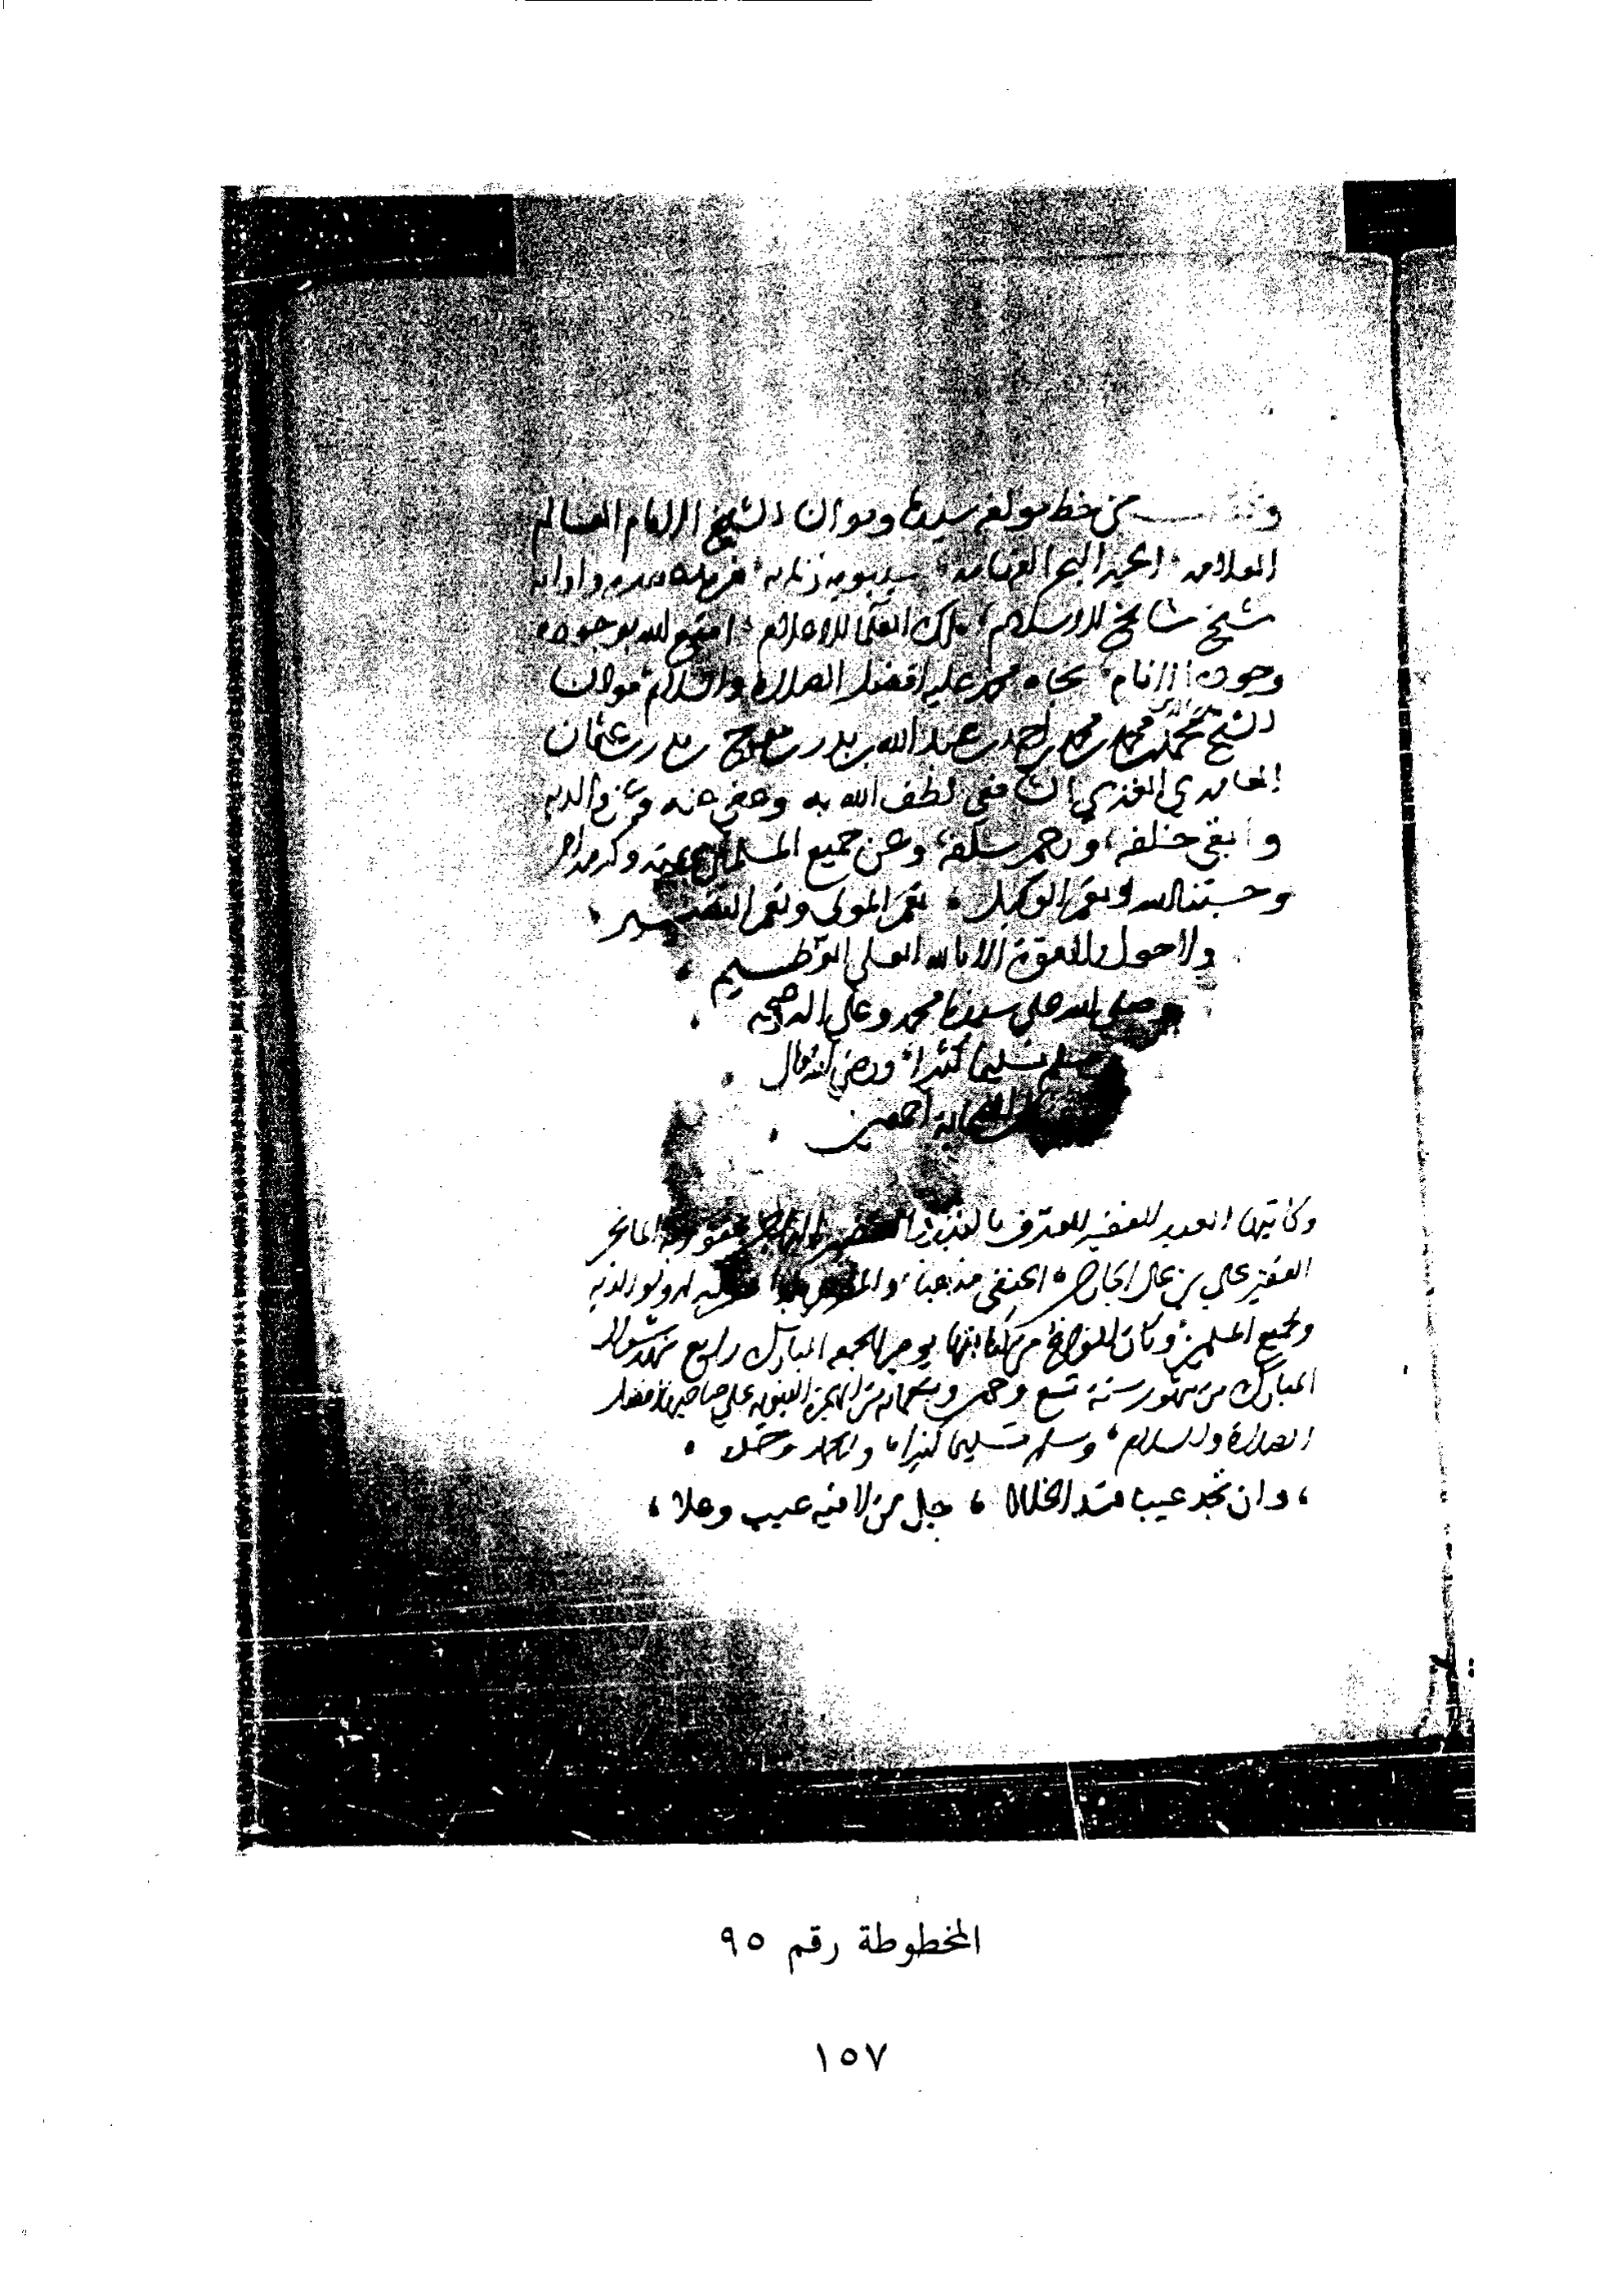 من خط مولفه سيدنا ومولانا الشيخ الامام العالم
العلامه الحبر البحر الفهامه سيبويه زمانه فريد واوانه
شيخ مشايخ الاسلام ملك العلما الاعلام امتع الله بوجوده
وجوده الانام بجاه محمد عليه افضل الصلاة والسلام مولانا
الشيخ محمد بن محمد بن محمد بن احمد بن عبد الله بن بدر بن مفرج بن بدر بن عثمان
العامري الغزي الشافعي لطف الله به وعفى عنه وعن والديه
وابقى خلفه ورحم سلفه وعن جميع المسلمين بمنه وكرمه
وحسبنا الله ونعم الوكيل نعم المولى ونعم النصير
ولا حول ولا قوة الا بالله العلي العظيم
وصلى الله على سيدنا محمد وعلى اله وصحبه
وسلم تسليما كثيرا ورضي الله تعالى
عن الصحابة اجمعين
وكاتبها العبد الفقير المعترف بالذنب والتقصير الراجي عفو ربه
الفقير علي بن الحنفي مذهبا ولوالديه
ولجميع المسلمين وكان الفراغ من كتابتها يوم الجمعه المبارك رابع شهر شوال
المبارك من شهور سنة تسع وخمسين وتسعمائة من الهجرة النبويه على صاحبها افضل
الصلاة والسلام وسلم تسليما كثيرا
وان تجد عيبا فسد الخللا ، جل من لا فيه عيب وعلا ،
المخطوطة رقم ٩٥
١٥٧